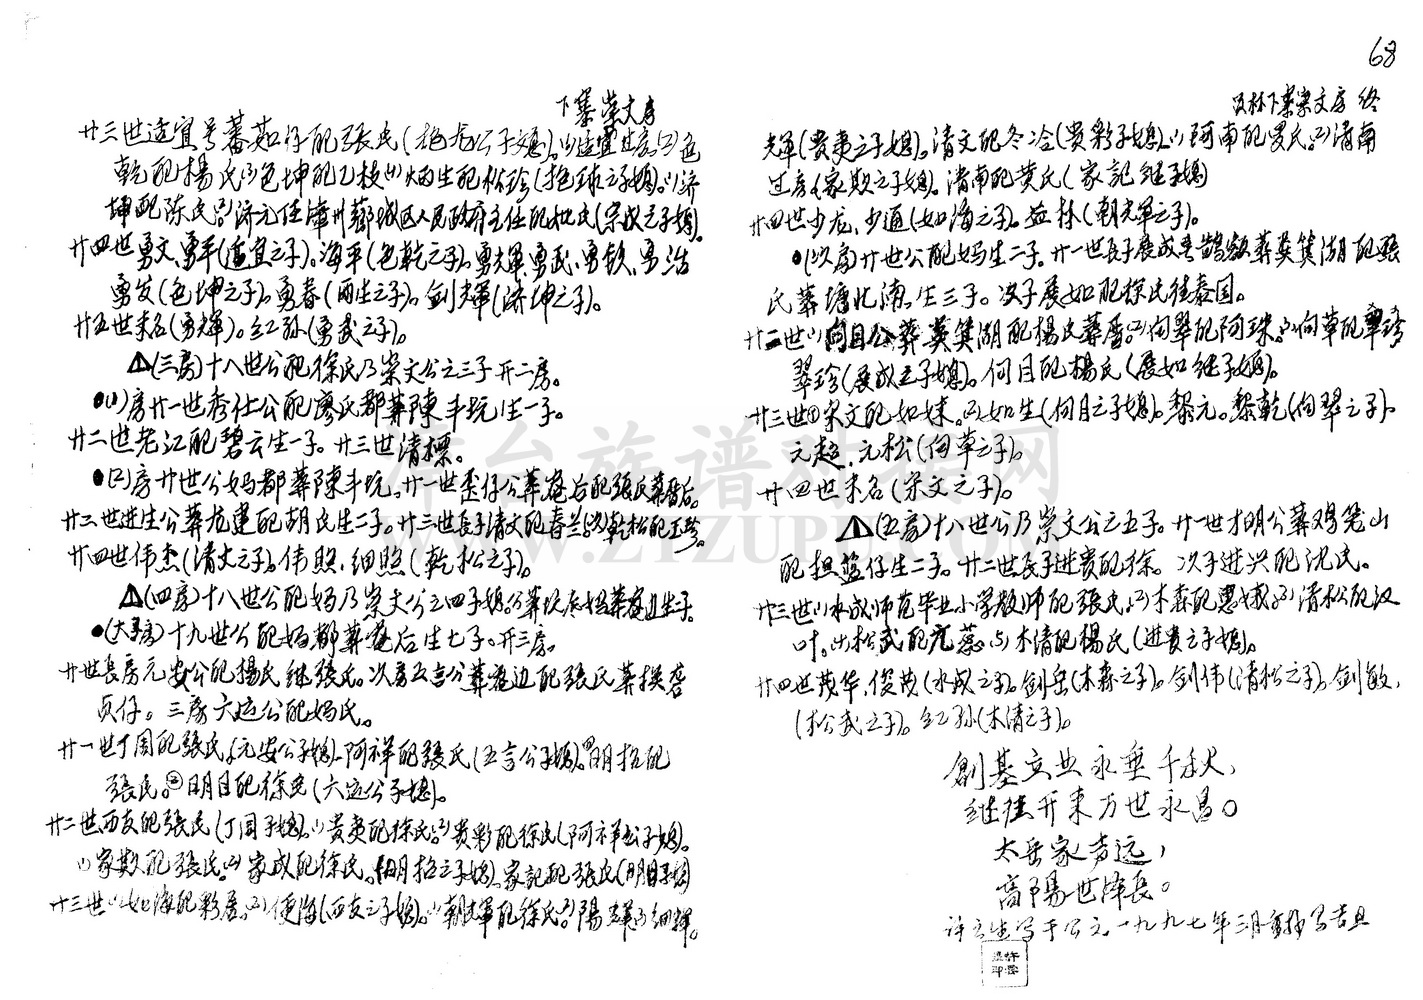 68
下寨崇文房
廿三世适宜号蕃茹仔配張氏(艳龙公子媳)。⑴适宜过房⑵色
乾配楊氏⑶色坤配乙枝⑷炳生配松珍(艳球之子媳)。⑴济
坤配陈氏⑵济元任漳州薌城区人民政府主任配林氏(宗成之子媳)。
廿四世勇文、勇平(适宜之子)。海平(色乾之子)。勇輝、勇武、勇敏、勇浩
勇发(色坤之子)。勇春(炳生之子)。剑輝(济坤之子)。
廿五世未名(勇輝)。红孙(勇武之子)。
△(三房)十八世公配徐氏乃崇文公之三子开二房。
●⑴房廿一世秀仕公配廖氏都葬陳斗坑生一子。
廿二世老江配碧云生一子。廿三世清標。
●⑵房廿世公妈都葬陳斗坑。廿一世歪仔公葬庵后配張氏葬厝后。
廿二世进生公葬龙建配胡氏生二子。廿三世長子清文配春兰。次乾松配玉珍。
廿四世伟杰(清文之子)。伟照、细照(乾松之子)。
△(四房)十八世公配妈乃崇文公之四子媳公葬坎庵妈葬庵边生子。
●(大房)十九世公配妈都葬庵后生七子。开三房。
廿世長房元安公配楊氏继張氏。次房五言公葬庵边配張氏葬撰砻
贞仔。三房六运公配妈氏。
廿一世丁周配張氏(元安公子媳)。阿祥配張氏(五言公子媳)。①明招配
張氏。②明目配徐氏(六运公子媳)。
廿二世西友配張氏(丁周子媳)。⑴贵夷配徐氏⑵贵彩配徐氏(阿祥公子媳)。
⑴家欺配張氏⑵家成配徐氏(明招之子媳)。家記配張氏(明目子媳)
廿三世⑴如海配彩屋。⑵便海(西友之子媳)。⑴朝輝配徐氏⑵陽輝⑶細輝。
汉林下寨崇文房 终
光輝(贵夷之子媳)。清文配冬冷(贵彩子媳)。⑴阿南配罗氏。⑵清南
过房(家欺之子媳)。清南配黄氏(家記继子媳)
廿四世少龙、少通(如海之子)。益林(朝輝之子)。
●(次房)廿世公配妈生二子。廿一世長子展成号鵲額葬英箕湖配張
氏葬塘北湳。生三子。次子展如配徐氏往泰国。
廿二世⑴向目公葬英箕湖配楊氏葬厝。⑵向翠配阿珠。⑶向草配
翠珍(展成之子媳)。何目配楊氏(展如继子媳)。
廿三世①宋文配如妹。⑵如生(向目之子媳)。黎元。黎乾(向翠之子)。
元超、元松(向草之子)。
廿四世未名(宋文之子)。
△(五房)十八世公乃崇文公之五子。廿一世才明公葬鸡笼山
配担盐仔生二子。廿二世長子进贵配徐。次子进兴配沈氏。
廿三世⑴水成师范毕业小学教师配張氏⑵木森配惠娥⑶清松配汉
叶。⑷松武配龙蕊⑸木清配楊氏(进贵之子媳)。
廿四世茂华、俊茂(水成之子)。剑岳(木森之子)。剑伟(清松之子)。剑敏、
(松武之子)。红孙(木清之子)。
創基立业永垂千秋,
继往开来万世永昌。
太岳家声远,
高陽世泽長。
许 生写于公元一九九七年三月 抄写吉旦
漳台族谱对接网
WWW.ZTZUPU.COM